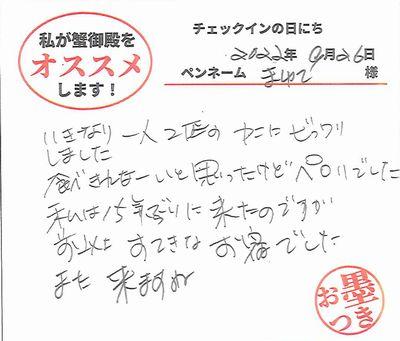 私が蟹御殿を
オススメ
します！
チェックインの日にち
2022年 9月26日
ペンネーム まゆで 様
いきなり 一人2匹の カニに ビックリ
しました
食べきれなーいと思ったけど ペロリでした
私は15年ぶりに 来たのですが
前以上 すてきな お宿でした
また 来ますね
墨
おつき